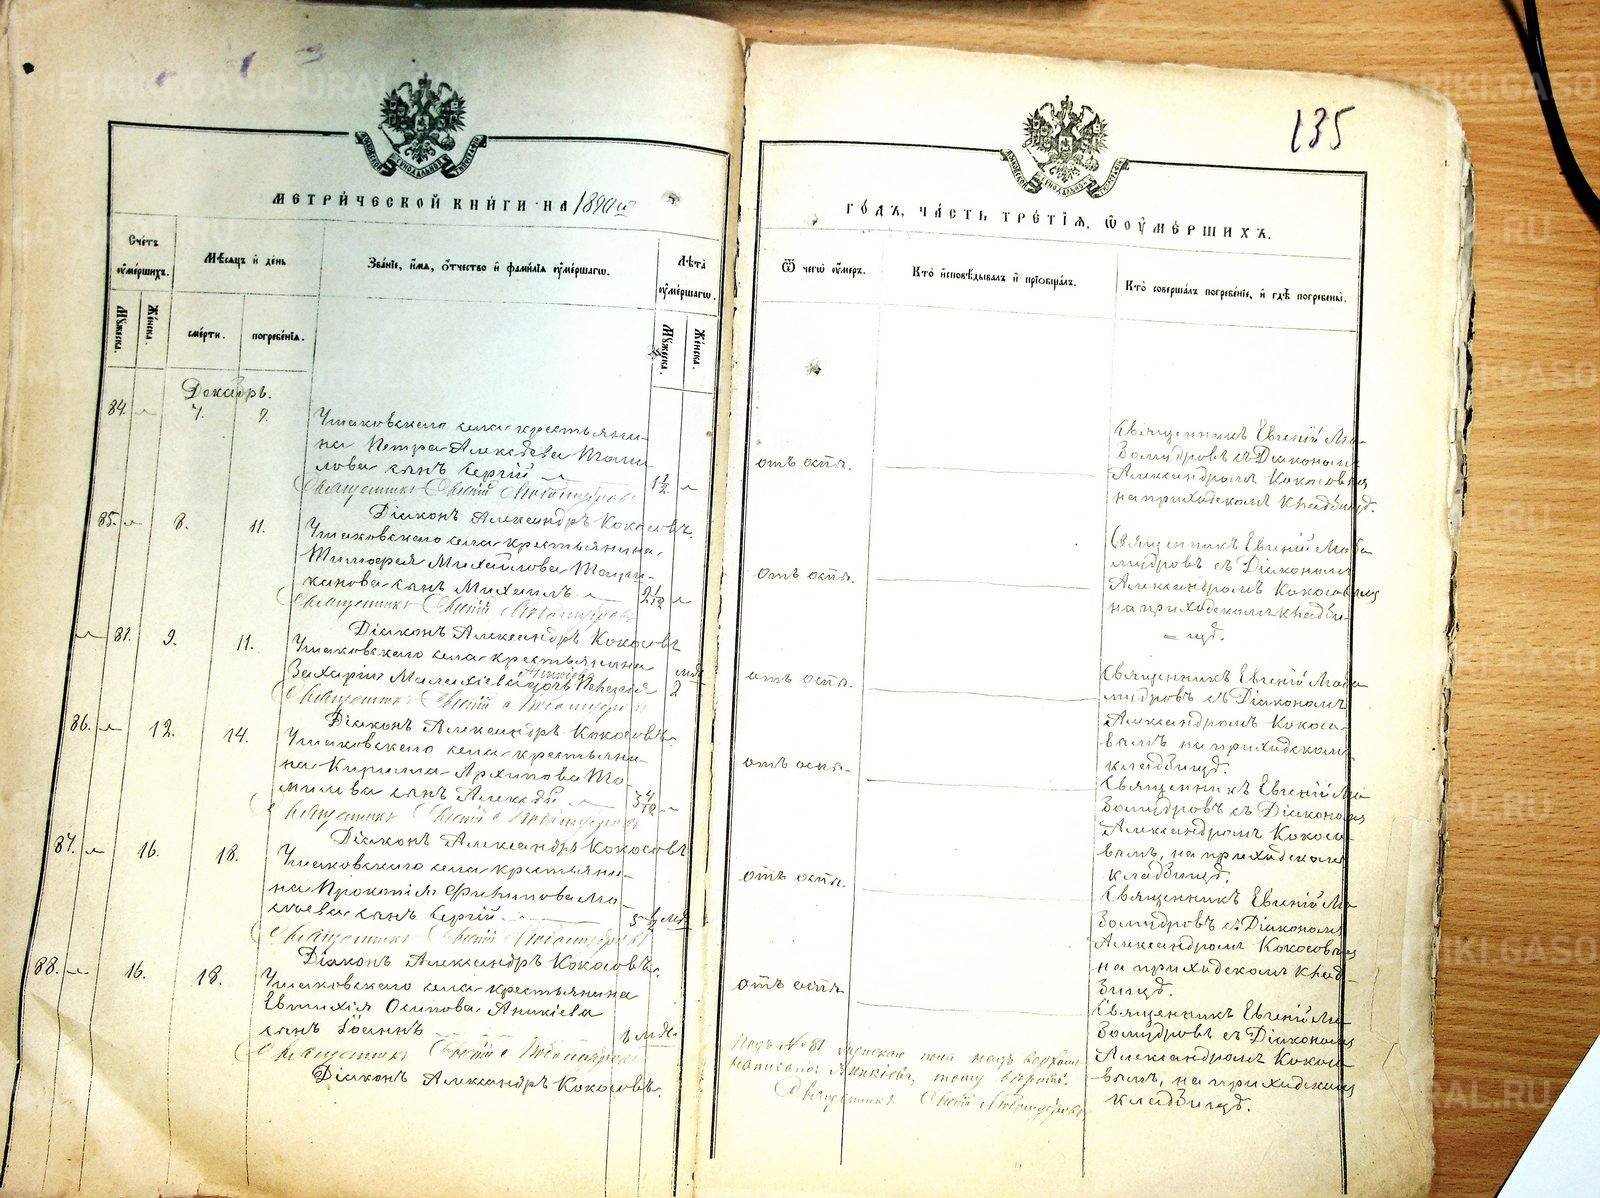 135
МЕТРИ́ЧЕСКОЙ КНИ́ГИ НА 1890й
ГО́ДЪ, ЧА́СТЬ ТРЕ́ТІѦ, Ѿ ОУ҆МЕ́РШИХЪ.
Сче́тъ оу҆ме́ршихъ.
Мѣ́сяцъ и҆ де́нь
Зва́нїе, и҆́мя, о҆́тчество и҆ фами́лїя оу҆ме́ршагѡ.
Лѣ́та оу҆ме́ршагѡ.
Ѿ чегѡ̀ оу҆́меръ.
Кто̀ и҆сповѣ́дывалъ и҆ прїѡбща́лъ.
Кто̀ соверша́лъ погребе́нїе, и҆ гдѣ̀ погребены̀.
Мꙋ́жеска.
Же́нска.
сме́рти.
погребе́нїя.
Мꙋ́жеска.
Же́нска.
Декабрь.
84.
7.
9.
Ушаковскаго села крестьяни-
на Петра Алексѣева Томи
лова сынъ Сергій
1 1/2
Священникъ Евгеній Любомудровъ
Діаконъ Александръ Кокосовъ.
отъ оспы.
Священникъ Евгеній Лю-
бомудровъ съ Діакономъ
Александромъ Кокосовымъ
на приходскомъ кладбищѣ.
85.
8.
11.
Ушаковскаго села крестьянина
Тимофея Михайлова
канова сынъ Михаилъ
2 1/12
Священникъ Евгеній Любомудровъ
Діаконъ Александръ Кокосовъ
отъ оспы.
Священникъ Евгеній Любо
мудровъ съ Діакономъ
Александромъ Кокосовымъ
на приходскомъ кладби-
щѣ.
81.
9.
11.
Ушаковскаго села крестьянина
Аникіева
Захарію дочь
2
Священникъ Евгеній Любомудровъ
Діаконъ Александръ Кокосовъ.
отъ оспы.
Священникъ Евгеній Любо
мудровъ съ Діакономъ
Александромъ Кокосо-
вымъ на приходскомъ
кладбищѣ.
86.
12.
14.
Ушаковскаго села крестьяни-
на Кирилла Архипова То-
милова сынъ Алексѣй
3 4/12
Священникъ Евгеній Любомудровъ
Діаконъ Александръ Кокосовъ
отъ оспы.
Священникъ Евгеній Лю-
бомудровъ съ Діакономъ
Александромъ Кокосо-
вымъ, на приходскомъ
кладбищѣ.
87.
16.
18.
Ушаковскаго села крестьяни-
на Прокопія Филиппова
сынъ Сергій
Священникъ Евгеній Любомудровъ
Діаконъ Александръ Кокосовъ.
отъ оспы.
Священникъ Евгеній Лю-
бомудровъ съ Діакономъ
Александромъ Кокосовымъ
на приходскомъ клад
бищѣ.
88.
16.
18.
Ушаковскаго села крестьянина
Евтихія Осипова Аникіева
сынъ Іоаннъ
Священникъ Евгеній Любомудровъ
Діаконъ Александръ Кокосовъ.
отъ оспы
Священникъ Евгеній Лю-
бомудровъ съ Діакономъ
Александромъ Кокосо-
вымъ, на приходскомъ
кладбищѣ.
Подъ № 81 женскаго пола надъ верхомъ
написано: Аникіева, тому вѣрить.
Священникъ Евгеній Любомудровъ
METRIKI.GASO-URAL.RU